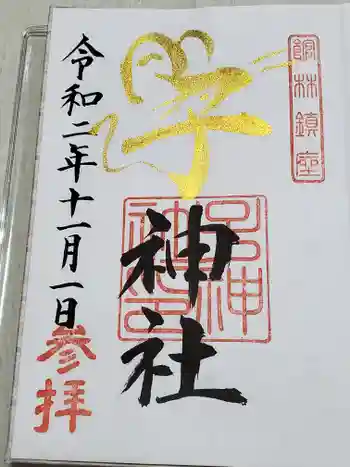 館林鎮座
子
神社
令和二年十一月一日
参拝